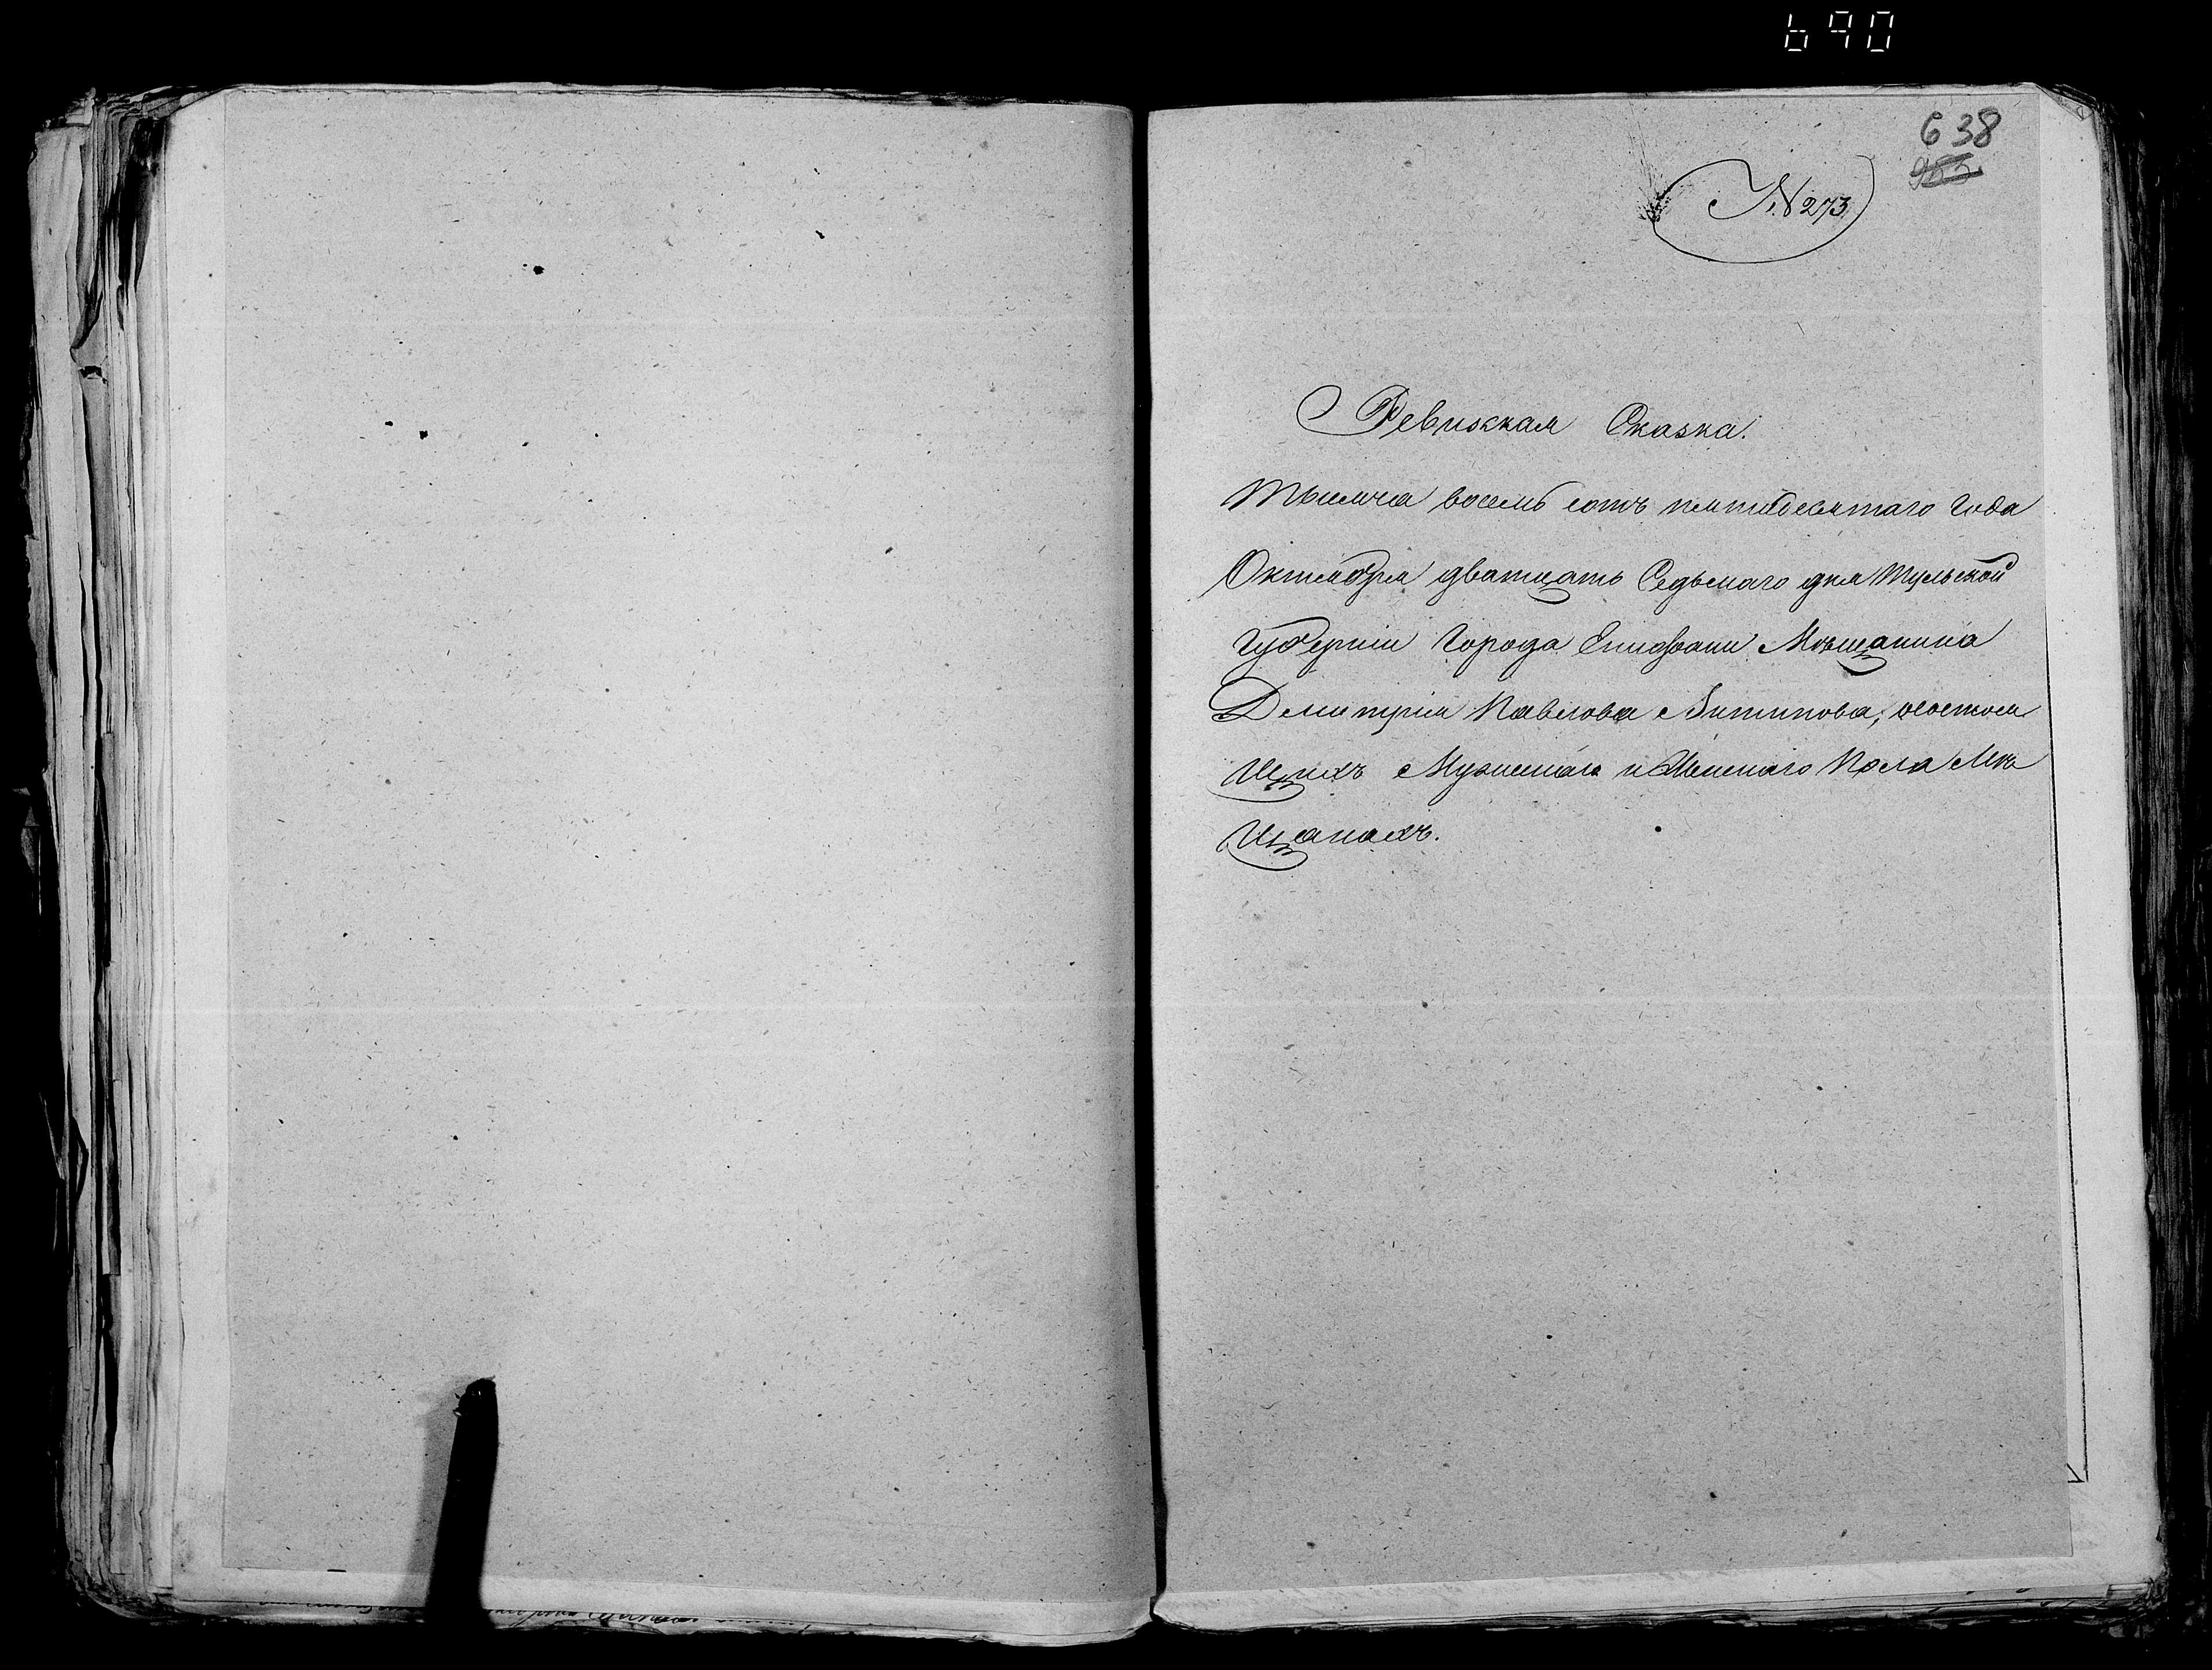 690
638
N 273.
Ревизкая Сказка.
Тысяча восемь сотъ пятидесятаго Года
Октября дватцать Седьмаго дня Тульской
Губерніи Города Епифани Мѣщанина
Дмитрія Павлова Антипова, осостоя
Щихъ Мужескаго и Женскаго Пола Мѣ
Щанахъ.